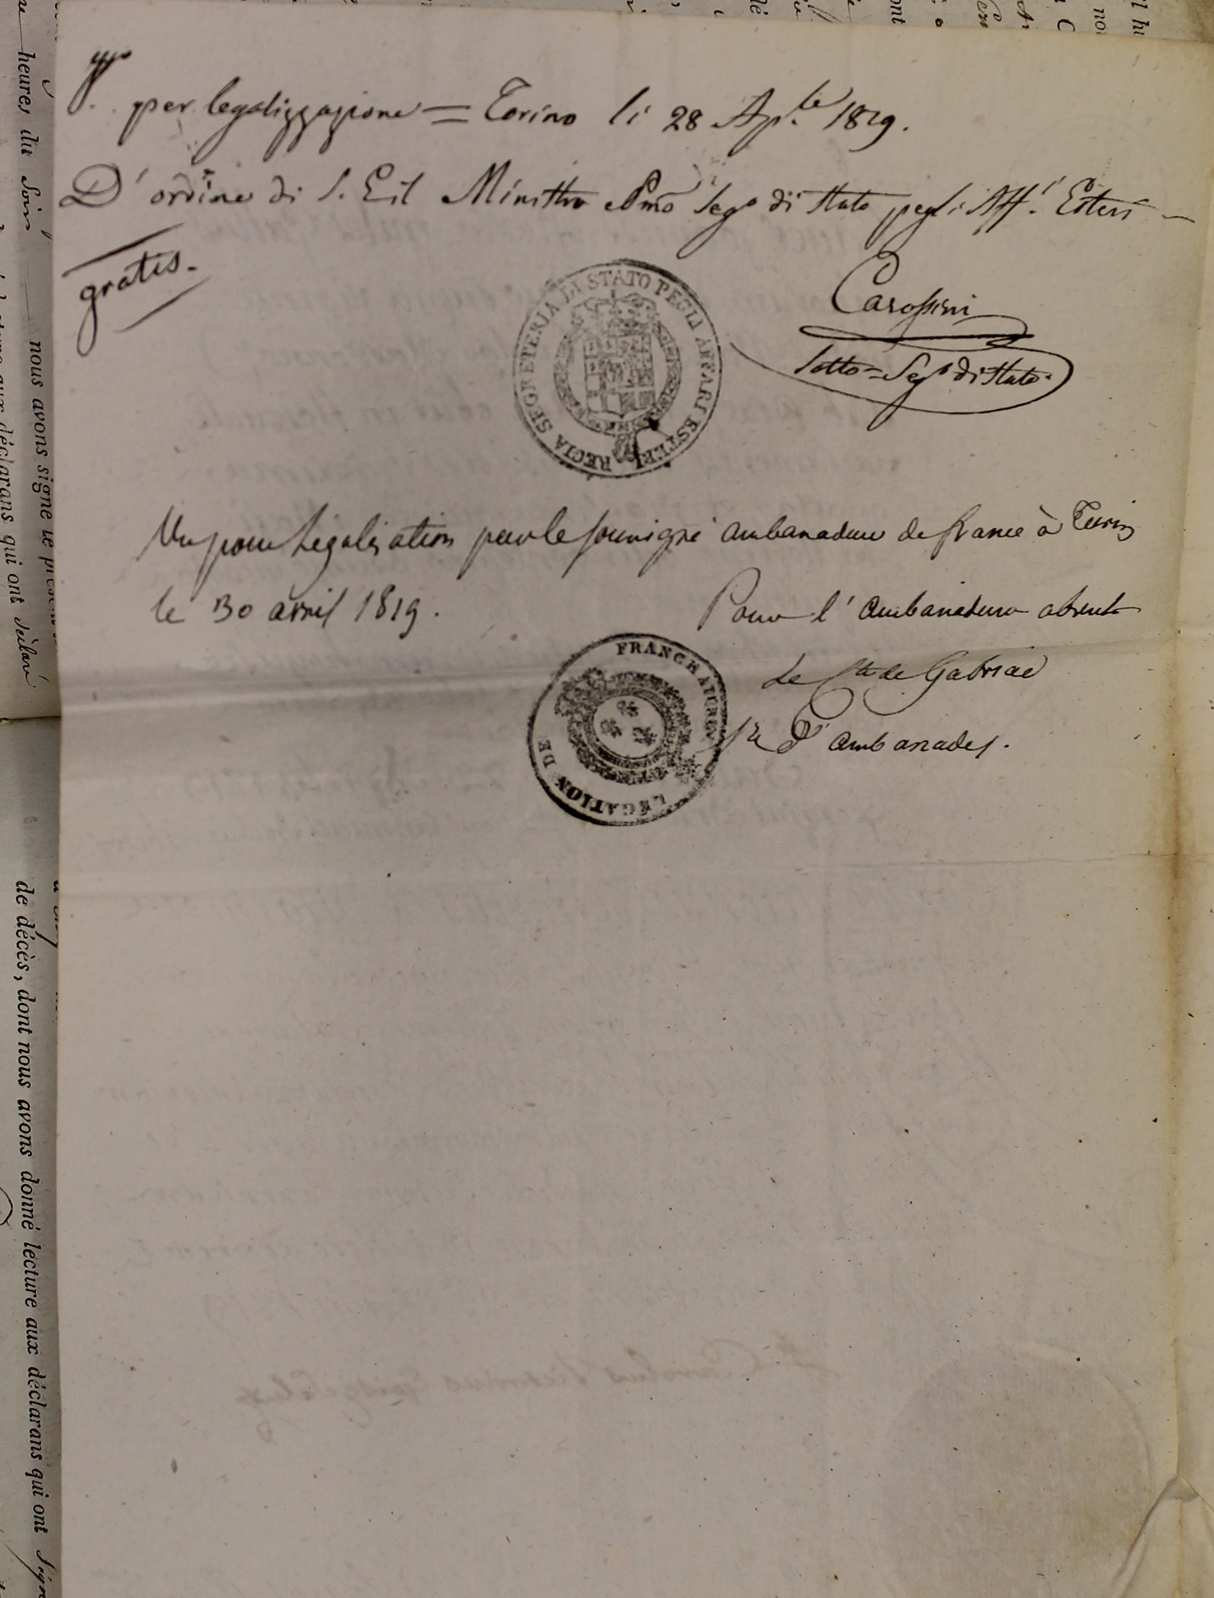 Vo per legalizzazione = Torino li 28 Ap.le 1819.
D'ordine di S. Ecc. Ministro e Pmo Segro di Stato pegli Aff.i Esteri
gratis.
REGIA SEGRETERIA DI STATO PEGLI AFFARI ESTERI
Carossini
Sotto=Segro di Stato.
Vu pour Légalisation par le soussigné ambassadeur de france à Turin
le 30 avril 1819.
Pour l'ambassadeur absent
Le Cte de Gabriac
Sre d'ambassade.
LEGATION DE FRANCE A TURIN
heures du Soir
nous avons signé le
déclarans qui ont déclaré
de décès, dont nous avons donné lecture aux déclarans qui ont Signé